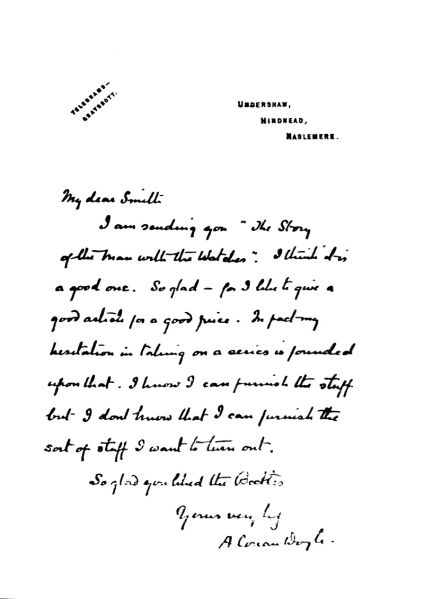 TELEGRAMS—
GRAYSHOTT.
UNDERSHAW,
HINDHEAD,
HASLEMERE.
My dear Smith
I am sending you "The Story
of the Man with the Watches". I think it is
a good one. So glad — for I like to give a
good article for a good price. In fact my
hesitation in taking on a series is founded
upon that. I know I can furnish the stuff
but I dont know that I can furnish the
sort of stuff I want to turn out.
So glad you liked the
Yours very
A Conan Doyle.